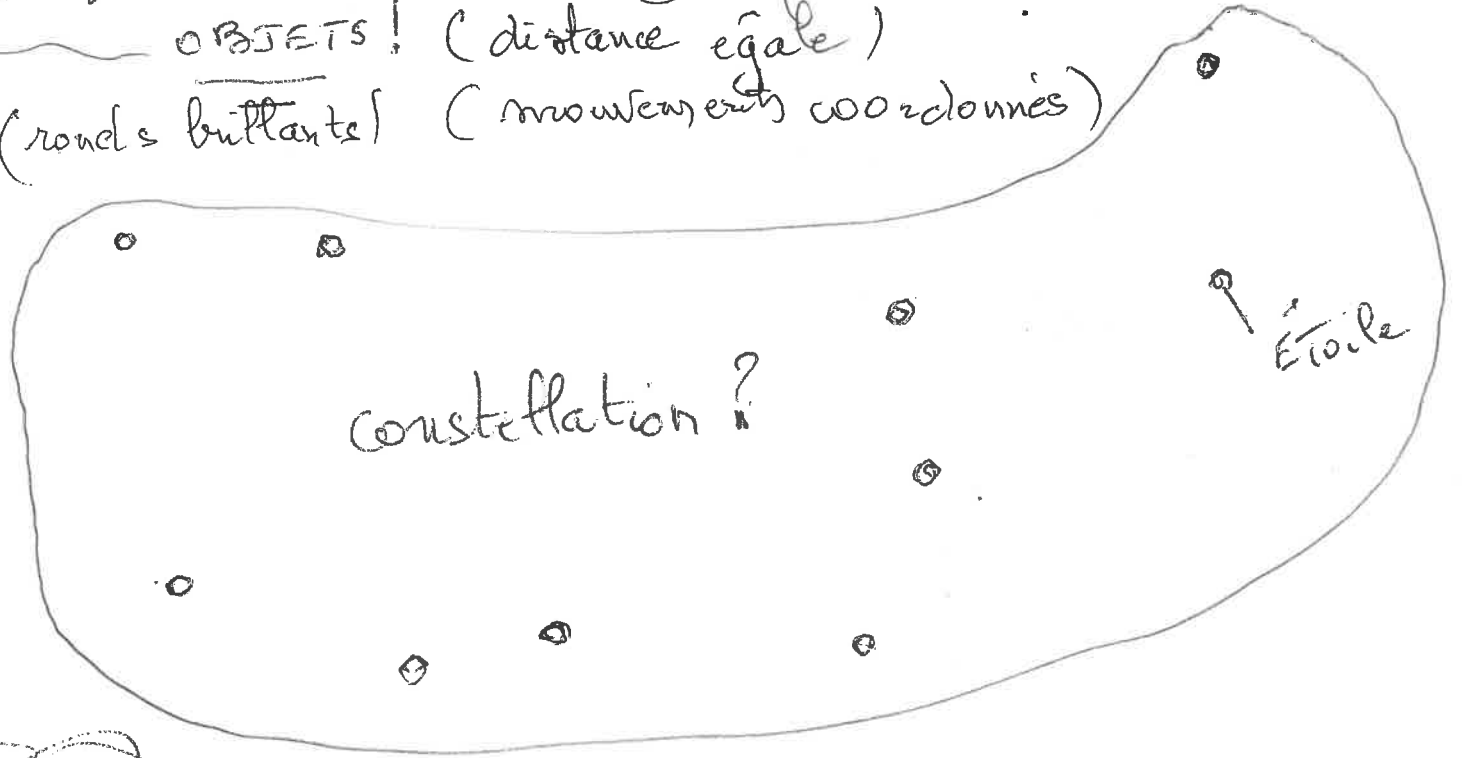 OBJETS! (distance egale)
(ronds brillants) (mouvements coordonnés)
Étoile
constellation?